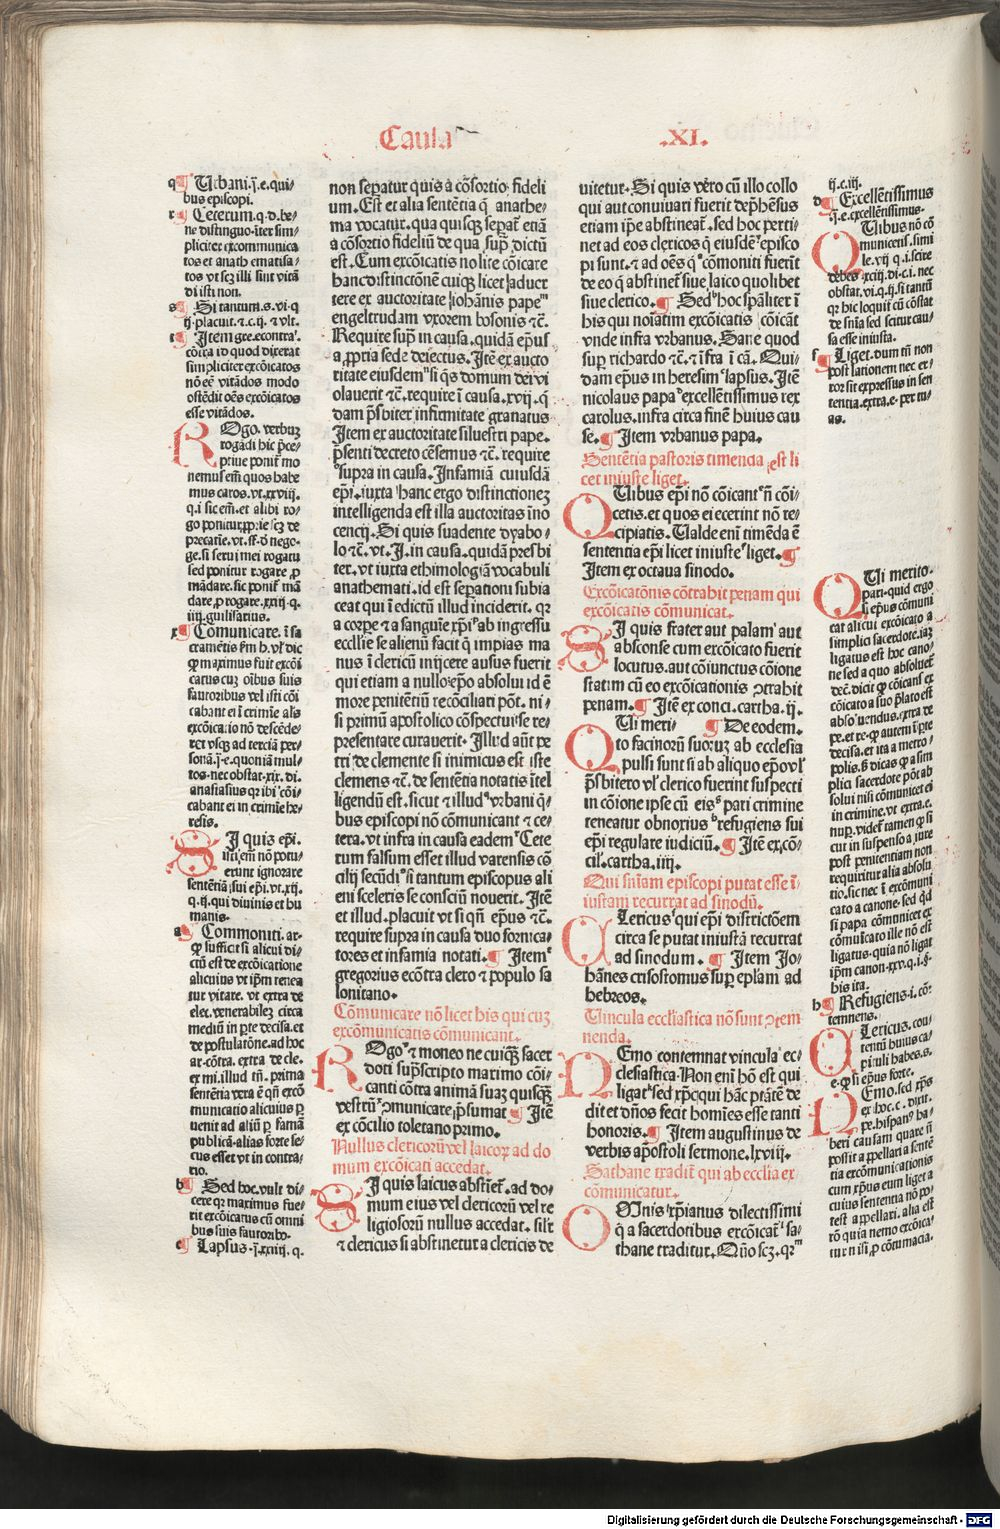 Causa
.XI.
q Urbani.i.e.qui-
bus episcopi.
r Ceterum.q.d.be-
ne distinguo.iter sim-
pliciter excommunica
tos et anathematisa-
tos vt scz illi sint vitã
di isti non.
s Si tantum.s.vi.q
ij.placuit.⁊.c.ij.⁊ vlt.
t Item gre.econtra.
cõtra id quod dixerat
simpliciter excõicatos
nõ eẽ vitãdos modo
ostẽdit oẽs excõicatos
esse vitãdos.
ROgo. verbuz
rogãdi hic p̃ce-
ptiue ponit̃ mo
nemus em̃ quos habe
mus caros.vt.xxviij.
q.i sic em̃.et alibi ro-
go ponitur,pprie scz de
precatiẽ.vt.ff.d nego-
ge.si serui mei rogatu
sed ponitur rogare p
mãdare.sic ponit̃ mã
dare,p rogare.xxiij.q.
iiij.guilisarius.
x Comunicare.ĩ sa
cramẽtis fm h.vl̃ dic
ꝙ maximus fuit excõi
catus cuz oĩbus suis
fautoribus vel isti cõi
cabant ei ĩ crimĩe als̃
excõica.io nõ descẽde-
ret vsqz ad terciã per-
sonã.j̃.e.quoniã mul-
tos.nec obstat.xix.di.
anastasius qr ibi cõi-
cabant ei in crimĩe he-
resis.
SI quis ep̃i.
isti em̃ nõ potu-
erunt ignorare
sentẽtiã sui ep̃i.vt.xij.
q.ij.qui diuinis et hu
manis.
a Commoniti.ar-
ꝙ sufficit si alicui di-
ctũ est de excõicatione
alicuius vt ip̃m tenea
tur vitare.vt extra de
elec.venerabilez circa
mediũ in p̃te decisa.et
de postulatõne.ad hoc
ar.cõtra.extra de cle.
ex mi.illud tñ.prima
sentẽtia vera ẽ qñ excõ
municatio alicuius p
uenit ad aliũ p famã
publicã.alias forte se-
cus esset vt in contra-
rio.
b Sed hoc.vult di-
cere qr maximus fue-
rit excõicatus cũ omni
bus suis fautorib⁹.
c Lapsus.j̃.xxiiij.q.
non seꝑatur quis a cõsortio fideli
um.Est et alia sentẽtia q̃ anathe-
ma vocatur.qua quisqz seꝑat̃ etiã
a cõsortio fideliũ de qua sup̃ dictũ
est.Cum excõicatis nolite cõicare
hanc distinctionẽ cuiqz licet aduer
tere ex auctoritate iohãnis pape
engeltrudam vxorem bosonis ⁊c̃.
Require sup̃ in causa.quidã ep̃us
a,ppria sede deiectus.Itẽ ex aucto
ritate eiusdem si q̃s domum dei vi
olauerit ⁊c̃.require ĩ causa.xvij.q̃
dam p̃sbiter infirmitate granatus
Item ex auctoritate siluestri pape.
p̃senti decreto cẽsemus ⁊c̃.require
supra in causa.Infamiã cuiusdã
ep̃i.iuxta hanc ergo distinctionez
intelligenda est illa auctoritas ĩno
cencij.Si quis suadente dyabo-
lo ⁊c̃.vt.J.in causa.quidã presbi
ter.vt iuxta ethimologiã vocabuli
anathemati.id est seꝑationi subia
ceat qui ĩ edictũ illud inciderit.qr
a corꝑe ⁊ a sanguĩe xp̃i ab ingressu
eccl̃ie se alienũ facit q̃ impias ma
nus ĩ clericũ inijcere ausus fuerit
qui etiam a nullo ep̃o absolui id ẽ
more penitẽtiũ recõciliari põt. ni-
si primũ apostolico cõspectui se re-
presentare curauerit. Illud aũt pe
tri de clemente si inimicus est iste
clemens ⁊c̃.de sentẽtia notatis ĩtel
ligendũ est.sicut ⁊ illud vrbani q̃-
bus episcopi nõ cõmunicant ⁊ ce-
tera.vt infra in causa eadem Cete
rum falsum esset illud varensis cõ
cilij secũdi si tantum episcopus ali
eni sceleris se consciũ nouerit.Itẽ
et illud.placuit vt si qñ ep̃us ⁊c̃.
require supra in causa duo fornica-
tores et infamia notati. Item
gregorius ecõtra clero ⁊ populo sa
lonitano.
Cõmunicare nõ licet his qui cuz
excõmunicatis cõmunicant.
ROgo ⁊ moneo ne cuiqz sacer
doti sup̃scripto maximo cõi-
canti cõtra animã suaz quisqz
vestrũ ꝯmunicare p̃sumat Itẽ
ex cõcilio toletano primo.
Nullus clericorũ vel laicoꝝ ad do
mum excõicati accedat.
SI quis laicus abstiet̃.ad do-
mum eius vel clericorũ vel re
ligiosorũ nullus accedat.silr
⁊ clericus si abstinetur a clericis de
uitetur.Si quis vero cũ illo collo
qui aut conuiuari fuerit dep̃hẽsus
etiam ip̃e abstineat̃.sed hoc perti-
net ad eos clericos q̃ eiusdẽ ep̃isco
pi sunt.⁊ ad oẽs q̃ cõmoniti fuerĩt
de eo q̃ abstinet̃ siue laico quolibet
siue clerico. Sed hoc sp̃aliter ĩ
his qui noĩatim excõicatis cõicãt
vnde infra vrbanus.Sane quod
suꝑ richardo ⁊c̃.⁊ ĩfra ĩ cã.Qui-
dam ep̃us in heresim lapsus.Itẽ
nicolaus papa excellẽtissimus rex
carolus.infra circa finẽ huius cau
se. Item vrbanus papa.
Sentẽtia pastoris timenda est li
cet iniuste liget.
QUibus ep̃i nõ cõicant ñ cõi-
cetis.et quos eiecerint nõ re-
cipiatis.Valde eni timẽda ẽ
sententia ep̃i licet iniuste liget.
Item ex octaua sinodo.
Excõicatõnis cõtrabit penam qui
excõicatis cõmunicat.
SI quis frater aut palam aut
absconse cum excõicato fuerit
locutus.aut cõiunctus cõione
statim cũ eo excõicationis ꝯtrahit
penam. Itẽ ex conci.cartha.ij.
QUi meri- De eodem.
to facinorũ suoruz ab ecclesia
pulsi sunt si ab aliquo ep̃o vl̃
p̃sbitero vl̃ clerico fuerint suspecti
in cõione ipse cũ eis pari crimine
teneatur obnoxius refugiens sui
ep̃i regulare iudiciũ. Itẽ ex cõ-
cil.cartha.iiij.
Qui sniam episcopi putat esse ĩ-
iustam recurrat ad sinodũ.
CLericus qui ep̃i districtõem
circa se putat iniustã recurrat
ad sinodum. Item Jo-
hãnes crisostomus suꝑ ep̃lam ad
hebreos.
Vincula eccl̃iastica nõ sunt ꝯtem
nenda.
NEmo contemnat vincula ec-
clesiastica.Non eni hõ est qui
ligat sed xp̃c qui hãc p̃tãtẽ de
dit et dños fecit homĩes esse tanti
honoris. Item augustinus de
verbis ap̃ostoli sermone.lxviij.
Sathane tradit̃ qui ab eccl̃ia ex
cõmunicatur.
OMnis xp̃ianus dilectissimi
q̃ a sacerdotibus excõicat̃ sa-
thane traditur.Quõ scz.qr
ij.c.iij.
d Excellẽtissimus
.j̃.e.excellẽtissimus.
QUibus nõ cõ
municent.simi
le.vij q.i.scire
debes.xciij.di.c.i.nec
obstat.vi.q.ij.si tantũ
qr hic loquit̃ cũ cõstat
de snia sed scitur cau-
sa esse iniusta.
f Liget.dum tñ non
post lationem nec er-
ror sit expressus in sen
tentia.extra.e.per tu-
as.
QUi merito.
pari.quid ergo
si ep̃us cõmuni
cat alicui excõicato a
simplici sacerdote.iaz
ligatus est hoc cano-
ne sed a quo absoluet̃
decẽ.dicit ꝙ cõicans ex
cõicato a suo p̃lato est
absoluendus.extra de
pe.et re.ꝙ autem ĩ p̃te
decisa.et ita a metro-
polis.ß dicas ꝙ a sim
plici sacerdote pot ab
solui nisi cõmunicet ei
in crimine.vt extra.e.
nuꝑ.videt̃ tamen ꝙ si
cut in suspenso a iure
post penitentiam non
requiritur alia absolu
tio.sic nec ĩ excõmuni
cato a canone.sed qd
si papa cõmunicet ex
cõmũicato ille nõ est
ligatus.quia nõ ligat
ip̃m canon.xxv.q.i.§.
bis ita.
h Refugiens.i.cõ-
temnens.
CLericus.con-
tentũ huius ca-
pituli habes.s.
e.ꝙ si ep̃us forte.
NEmo.sed xp̃s
ex hoc.c.dixit.
pe.hispan⁹ ha-
beri causam quare ñ
possit appellari a sentẽ
tia excõmunicationis
cum xp̃us eum liget a
cuius sententia nõ po-
test appellari.alia est
rõ quia nemo excõica-
tur nisi,p cõtumacia.
Digitalisierung gefördert durch die Deutsche Forschungsgemeinschaft - DFG